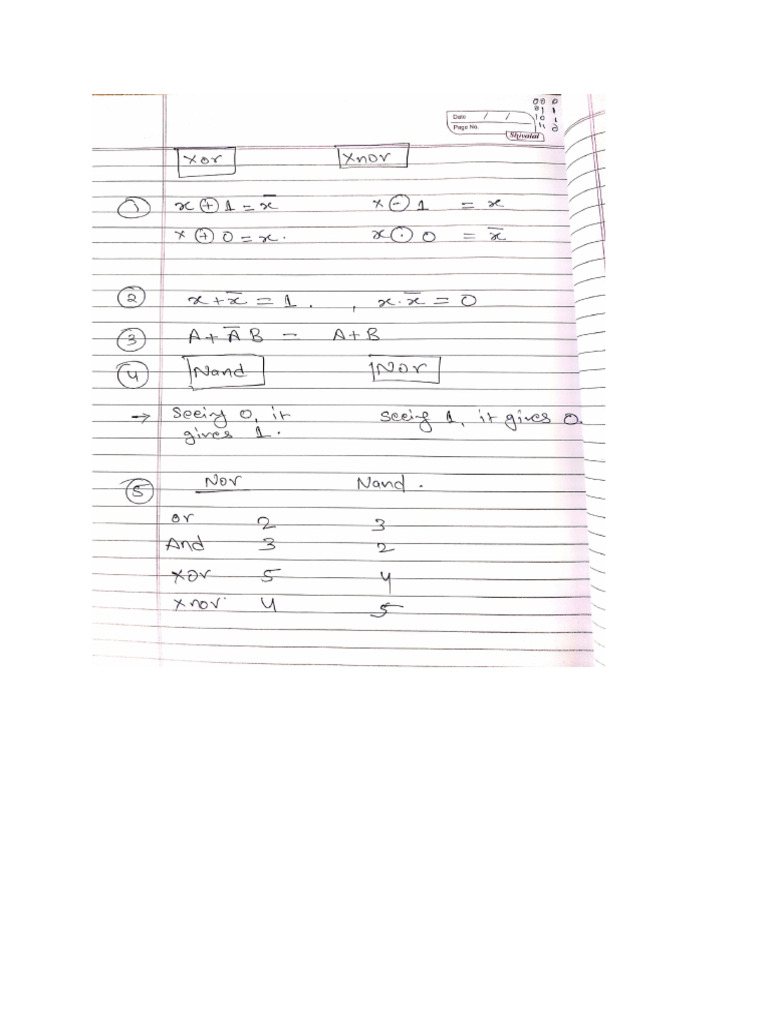 00 0
01 1
Date / /
10 1
Page No.
11 0
Shivalal
Xor Xnor
① x ⊕ 1 = x̅ x ⊙ 1 = x
x ⊕ 0 = x. x ⊙ 0 = x̅
② x + x̅ = 1 . , x . x̅ = 0
③ A + A̅ B = A + B
④ Nand Nor
→ Seeing 0, it seeing 1, it gives 0.
gives 1.
⑤ Nor Nand .
or 2 3
And 3 2
xor 5 4
xnor 4 5